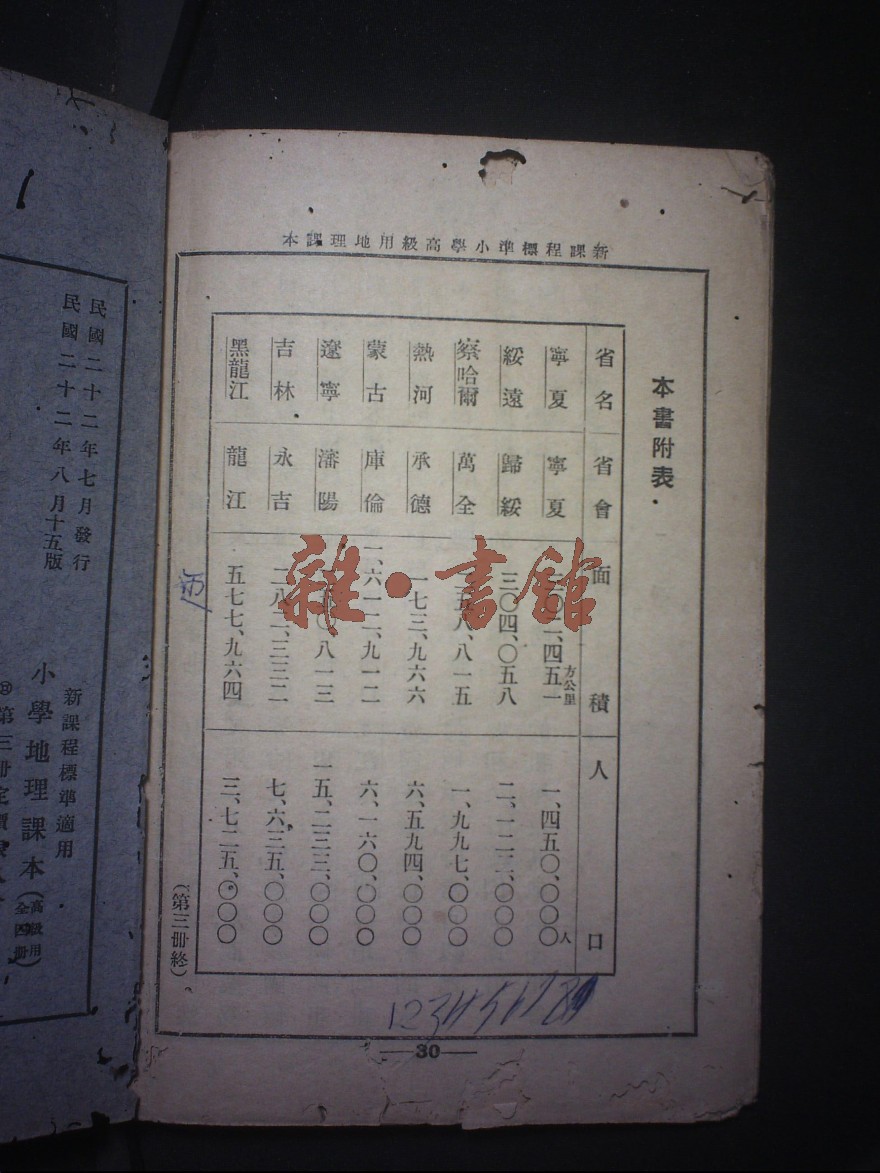 新課程標準小學高級用地理課本
本書附表
省名 省會 面積 人口
寧夏 寧夏 〇二、四五一方公里 一、四五〇、〇〇〇人
綏遠 歸綏 三〇四、〇五八 二、一二二、〇〇〇
察哈爾 萬全 五八、八一五 一、九九七、〇〇〇
熱河 承德 一七三、九六六 六、五九四、〇〇〇
蒙古 庫倫 一、六一二、九一二 六、一六〇、〇〇〇
遼寧 瀋陽 〇、八一三 一五、二三三、〇〇〇
吉林 永吉 二八二、三三二 七、六三五、〇〇〇
黑龍江 龍江 五七七、九六四 三、七二五、〇〇〇
(第三冊終)
30
雜·書館
民國二十二年七月發行
民國二十二年八月十五版
新課程標準適用
小學地理課本(高級用全四冊)
第三冊定價